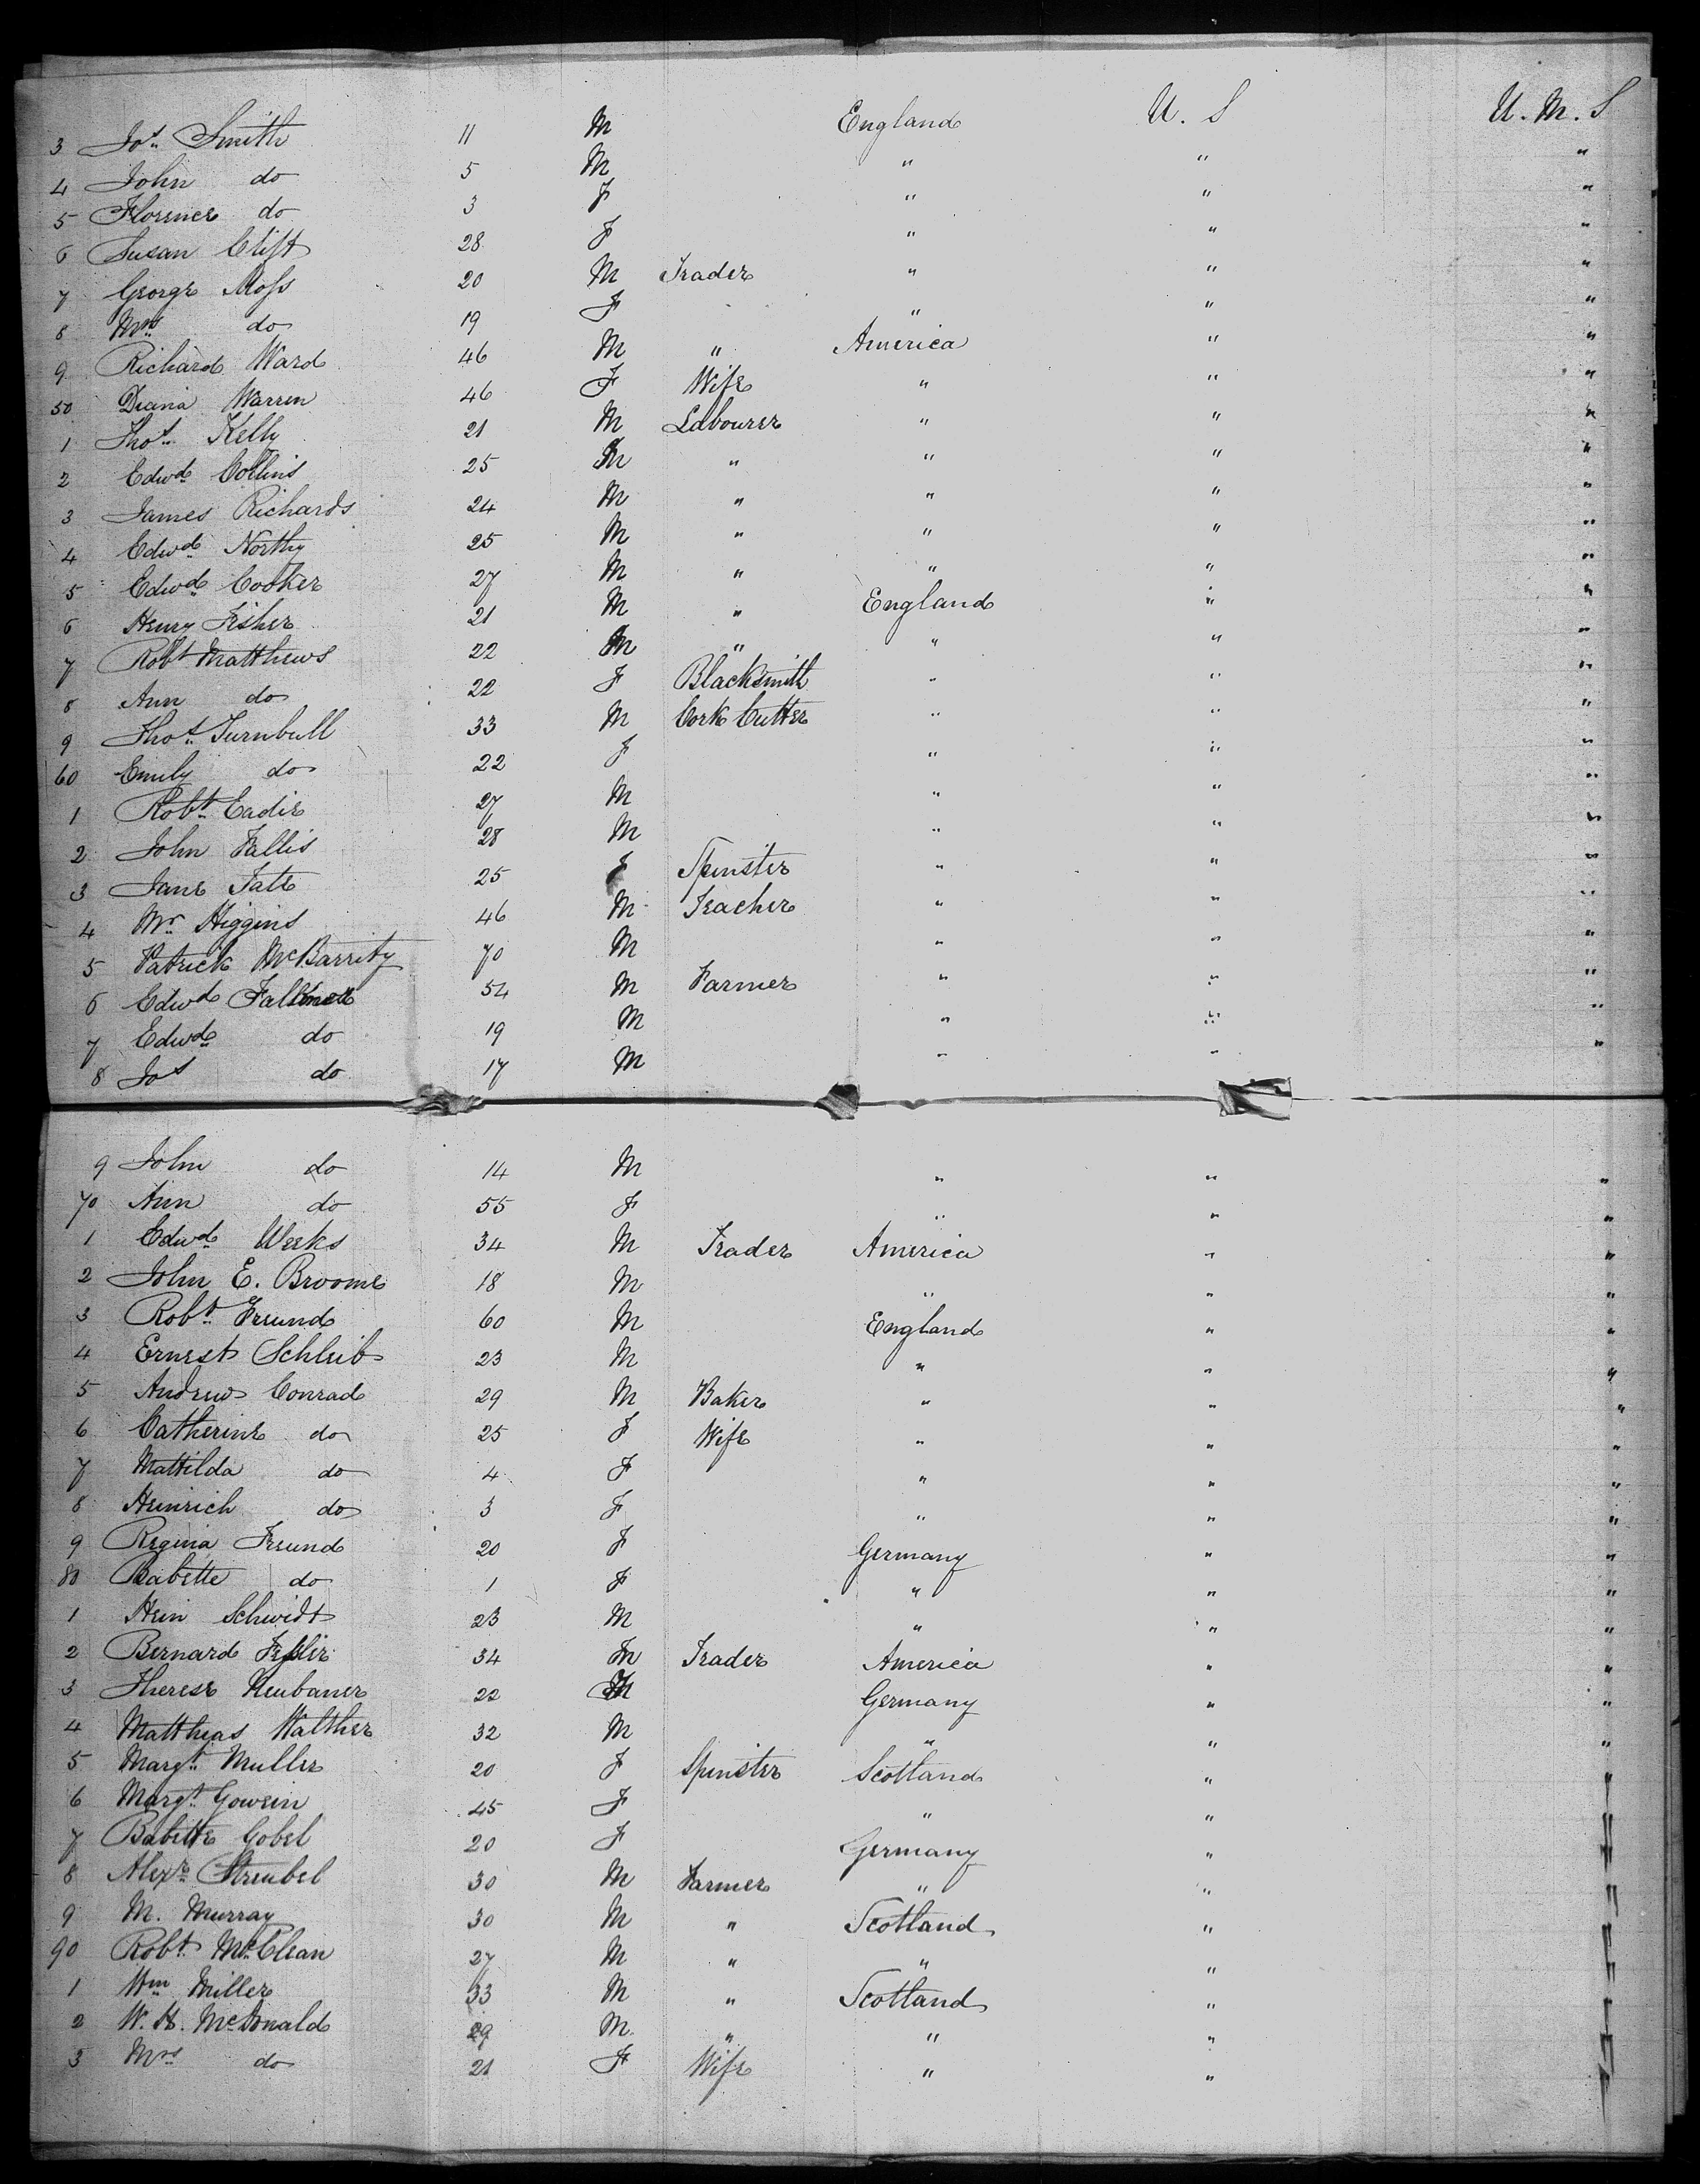 3 Jos. Smith 11 M England U. S U. M. S
4 John do 5 M " " "
5 Florence do 3 F " " "
6 Susan Clift 28 F " " "
7 George Moss 20 M Trader " " "
8 Mrs do 19 F " " "
9 Richard Ward 46 M " America " "
50 Diana Warren 46 F Wife " " "
1 Thos. Kelly 21 M Labourer " " "
2 Edwd Collins 25 M " " " "
3 James Richards 24 M " " " "
4 Edwd Northy 25 M " " " "
5 Edwd Cooker 27 M " " " "
6 Henry Fisher 21 M " England " "
7 Robt Matthews 22 M " " " "
8 Ann do 22 F Blacksmith " " "
9 Thos. Turnbull 33 M Cork Cutter " " "
60 Emily do 22 F " " "
1 Robt. Eadie 27 M " " "
2 John Fallis 28 M " " "
3 Jane Tate 25 F Spinster " " "
4 Mr. Higgins 46 M Teacher " " "
5 Patrick McBarrity 70 M " " "
6 Edwd 54 M Farmer " " "
7 Edwd do 19 M " " "
8 Jos do 17 M " " "
9 John do 14 M " " "
70 Ann do 55 F " " "
1 Edwd Weeks 34 M Trader America " "
2 John E. Broome 18 M " " "
3 Robt. Freund 60 M England " "
4 Ernest Schleib 23 M " " "
5 Andrew Conrad 29 M Baker " " "
6 Catherine do 25 F Wife " " "
7 Mathilda do 4 F " " "
8 Heinrich do 3 F " " "
9 Regina Freund 20 F Germany " "
80 Babette do 1 F " " "
1 Hein Schwidt 23 M " " "
2 Bernard Fessler 34 M Trader America " "
3 Therese Neubauer 22 Germany " "
4 Matthias Walther 32 M " " "
5 Margt. Muller 20 F Spinster Scotland " "
6 Margt. Gowein 45 F " " "
7 Babette Gobel 20 F Germany " "
8 Alexr. Streubel 30 M Farmer " " "
9 M. Murray 30 M " Scotland " "
90 Robt. McClean 27 M " " " "
1 Wm Miller 33 M " Scotland " "
2 W. H. McDonald 29 M " " " "
3 Mrs do 21 F Wife " " "